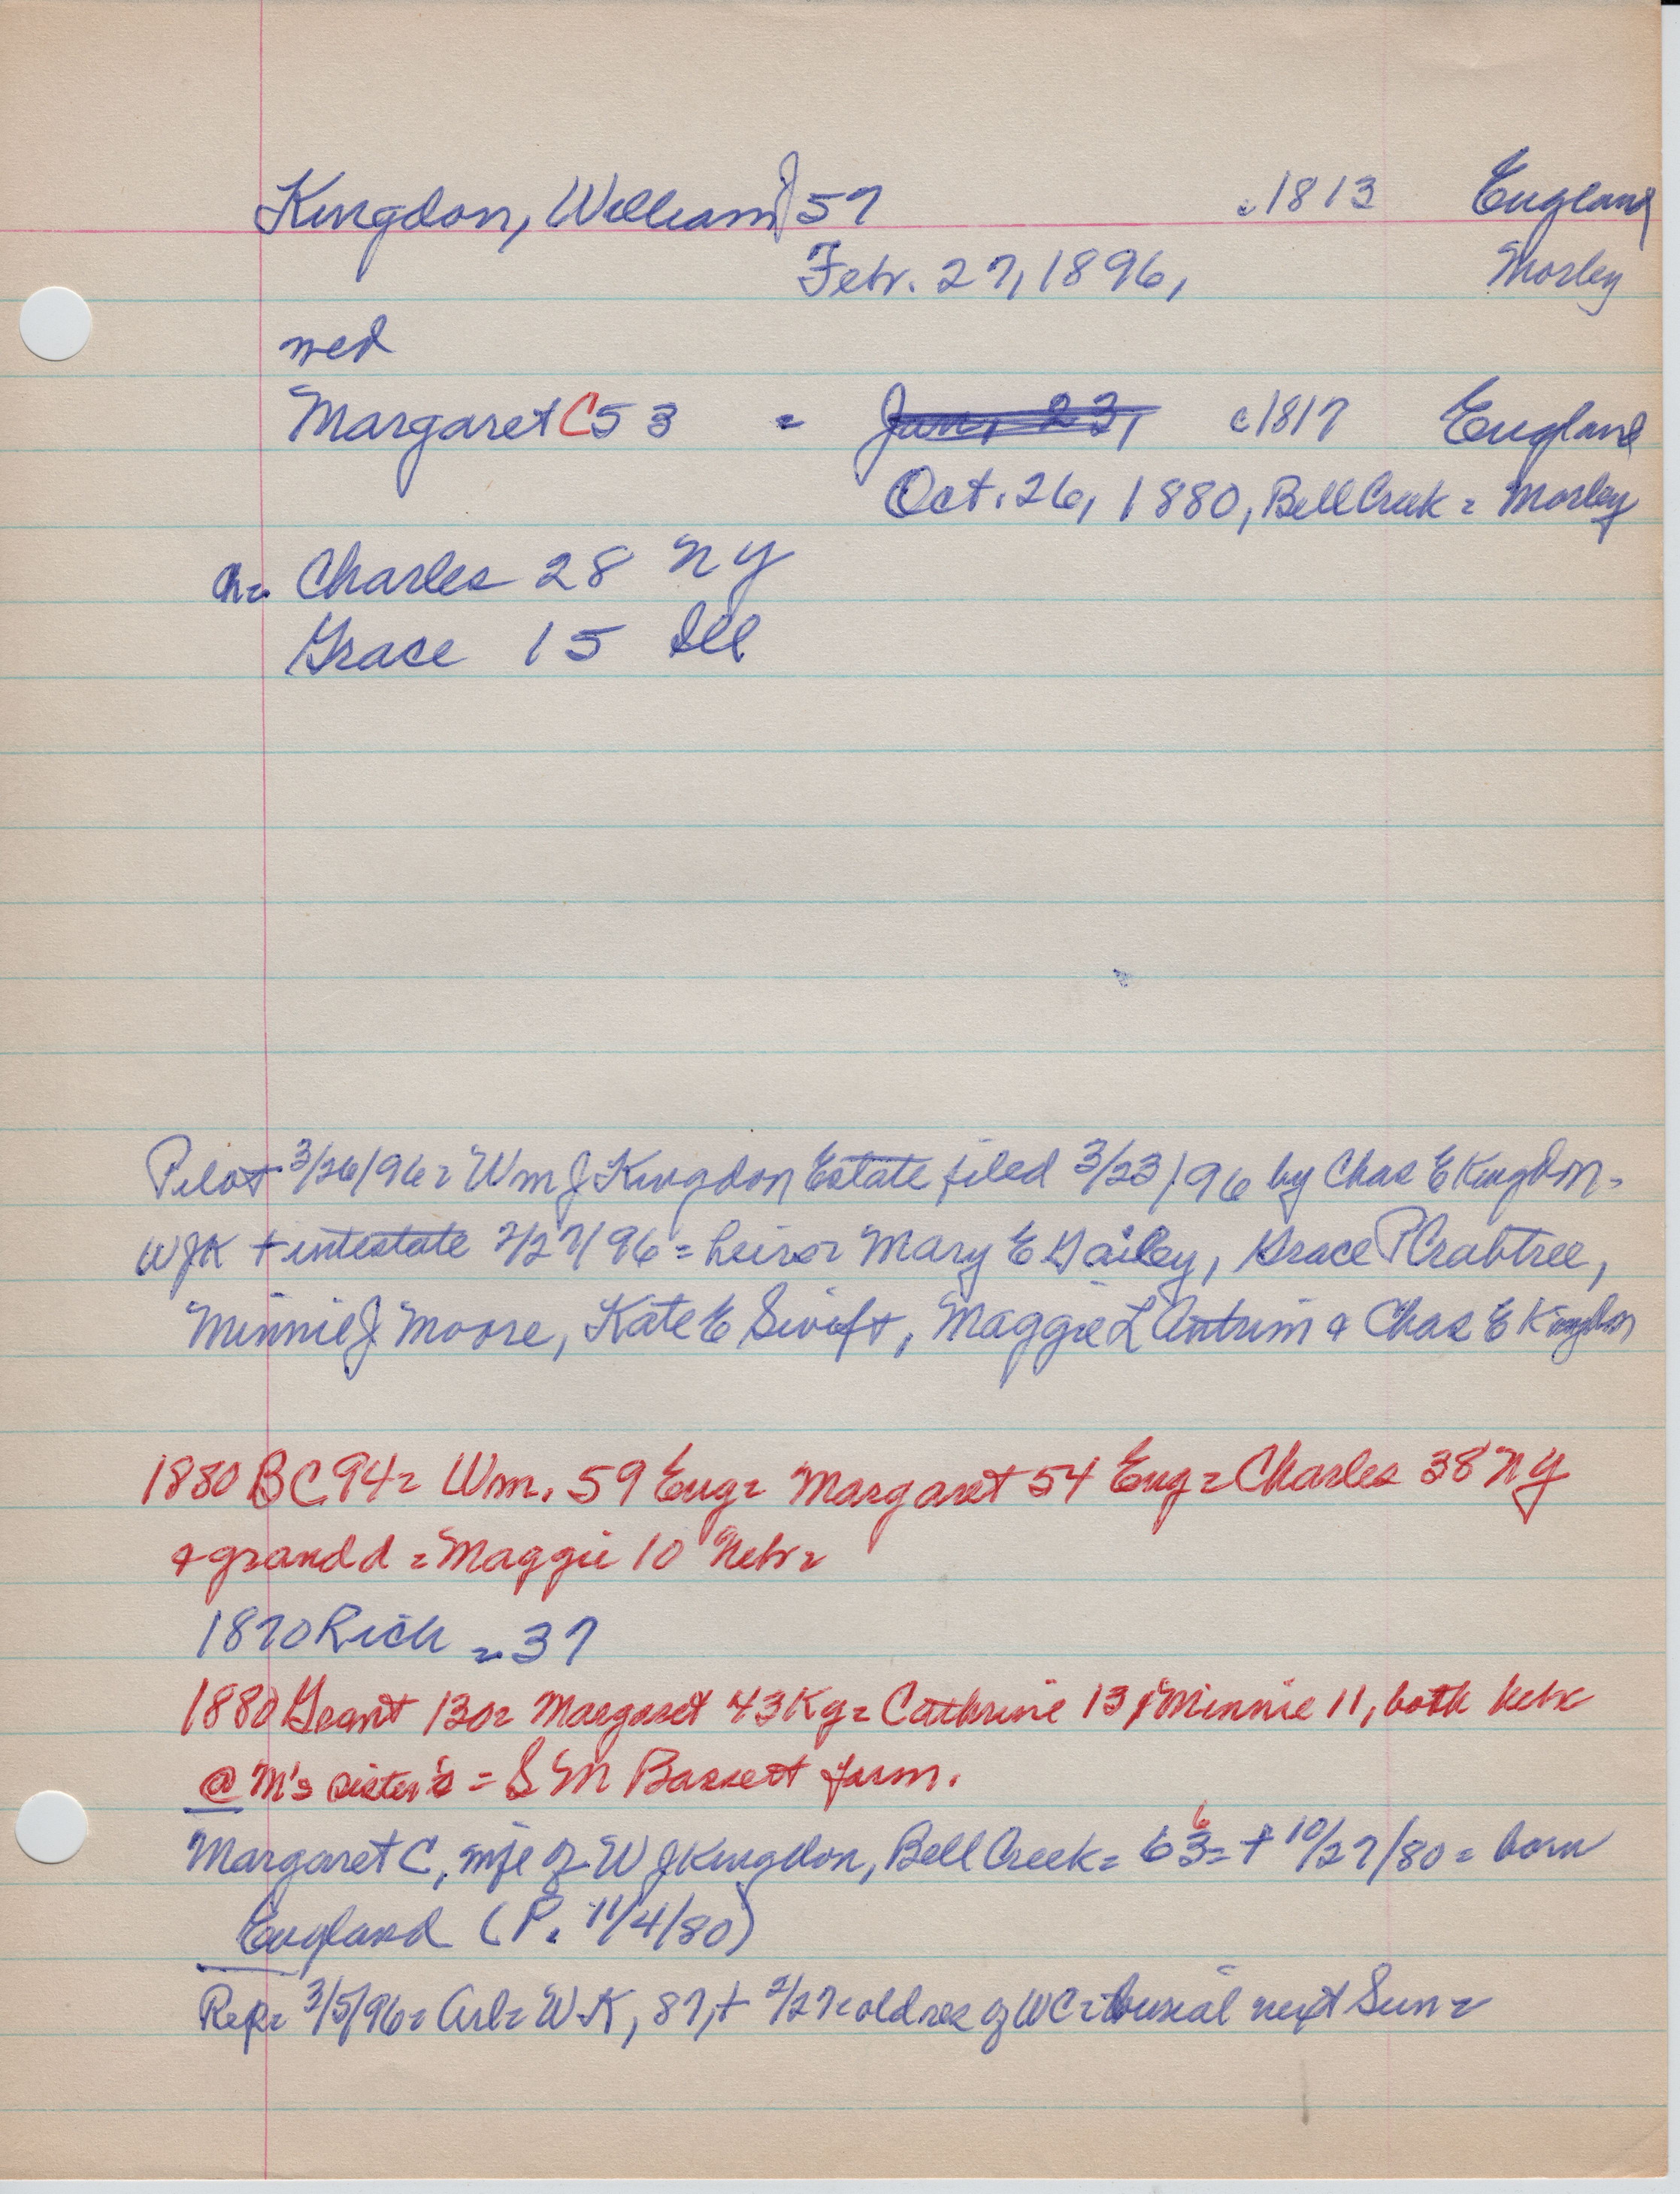 Kingdon, William J 57 c1813 England
Febr. 27, 1896, Morley
med
Margaret C 53 = Jan. 23, c1817 England
Oct. 26, 1880, Bell Creek = Morley
ch= Charles 28 NY
Grace 15 Ill
Pilot 3/26/96= Wm J Kingdon Estate filed 3/23/96 by Chas E Kingdon-
WJK + intestate 2/27/96= heirs= Mary E Gailey, Grace P Crabtree,
Minnie J Moore, Kate E Swift, Maggie L Antrim & Chas E Kingdon
1880 BC 94= Wm. 59 Eng= Margaret 54 Eng= Charles 38 NY
& grand d = Maggie 10 Nebr=
1870 Rich = 37
1880 Grant 130= Margaret 43 Ky= Cathrine 13 & Minnie 11, both Nebr
@ M's sister's = S M Bassett farm.
Margaret C, wife of W J Kingdon, Bell Creek= 63= 6 + 10/27/80= born
England (P. 11/4/80)
Rep= 3/5/96= Arl= W K, 87, + 2/27 = old res of WC= burial next Sun=